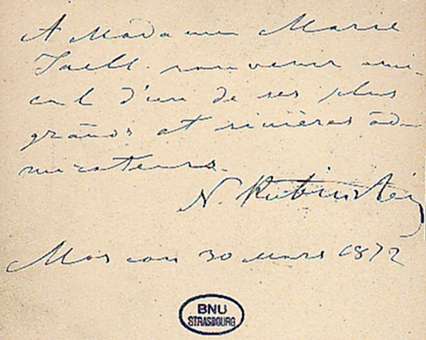 A Madame Marie
Jaell. souvenir ami-
cal d'un de ses plus
grands et sincères ad-
mirateurs.
N. Rubinstein
Moscou 30 mars 1872
BNU
STRASBOURG